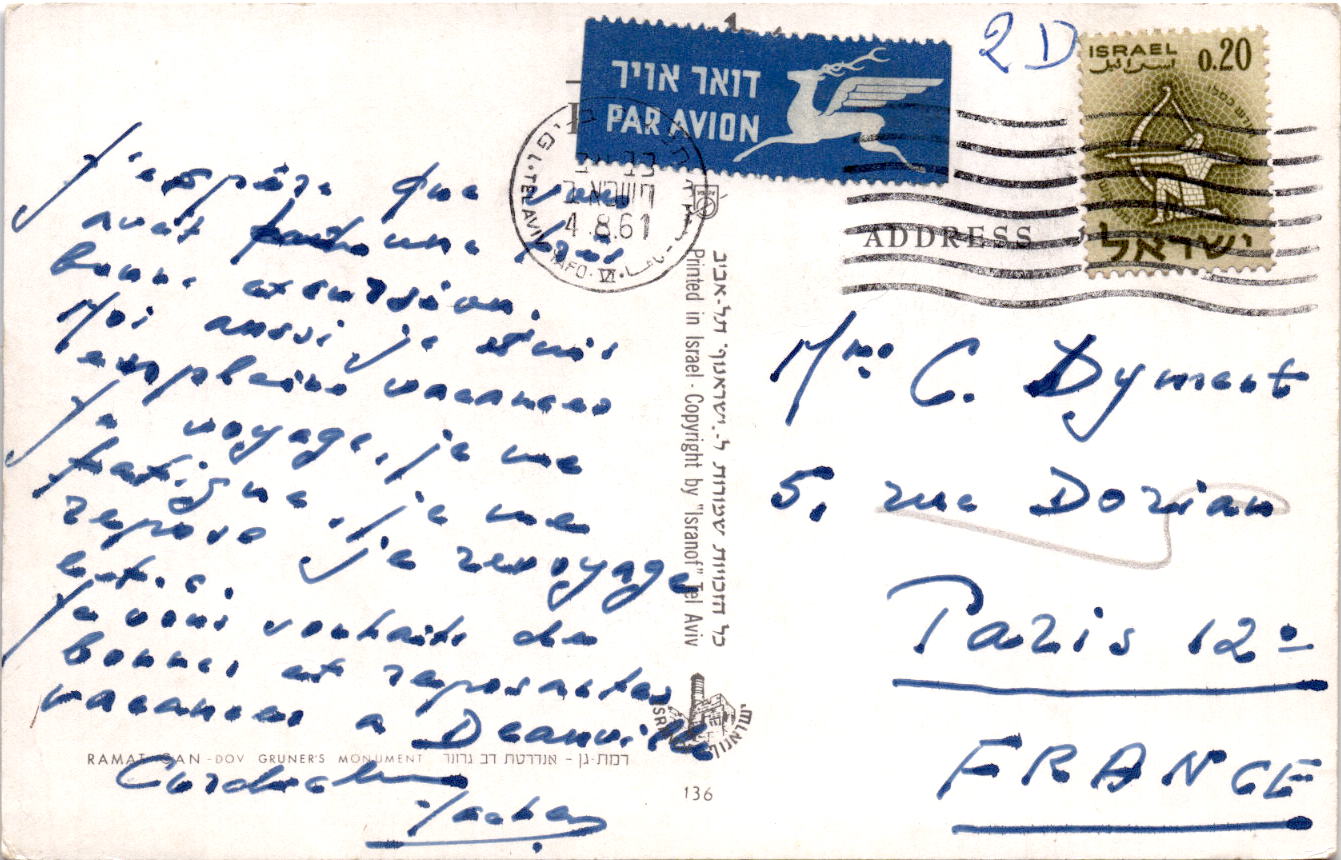 J'espère que vous
avez une très
bonne excursion.
Moi aussi je suis
en pleine vacances
Je voyage, je me
fatigue, je me
repose je revoyage
e.t.c.
Je vous souhaite des
bonnes et reposantes
vacances a Deauville
RAMAT GAN - DOV GRUNER'S MONUMENT רמת-גן - אנדרטת דב גרונר
2D
דואר אויר
PAR AVION
TEL AVIV YAFO · VI
4.8.61
ISRAEL 0.20
اسرائيل
ישראל
ADDRESS
Printed in Israel · Copyright by "Isranof" Tel Aviv
כל הזכויות שמורות ל-"ישראנוף" תל-אביב
136
Mme C. Dyment
5, rue Dorian
Paris 12e
FRANCE